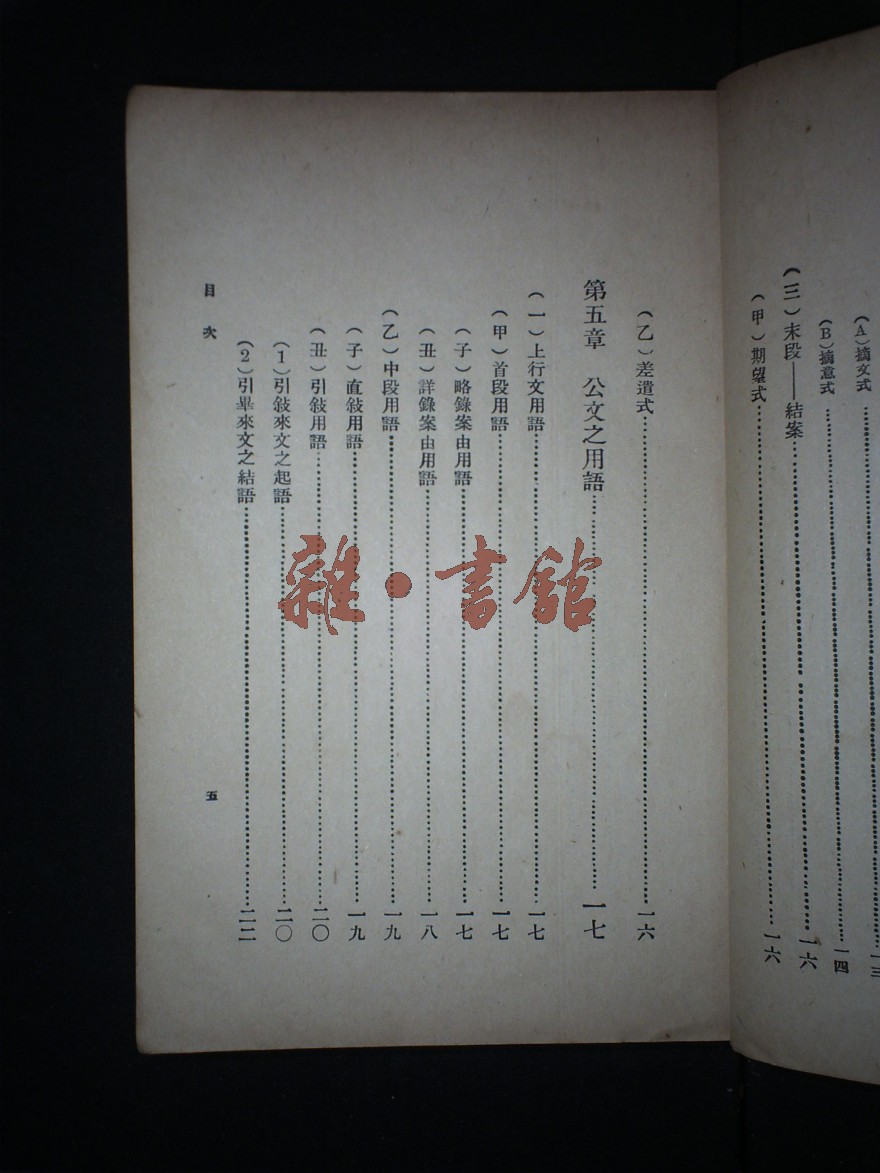 （A）摘文式……一三
（B）摘意式……一四
（三）末段——結案……一六
（甲）期望式……一六
（乙）差遣式……一六
第五章　公文之用語……一七
（一）上行文用語……一七
（甲）首段用語……一七
（子）略錄案由用語……一七
（丑）詳錄案由用語……一八
（乙）中段用語……一九
（子）直敍用語……一九
（丑）引敍用語……二〇
（1）引敍來文之起語……二〇
（2）引畢來文之結語……二二
目次
五
雜·書館